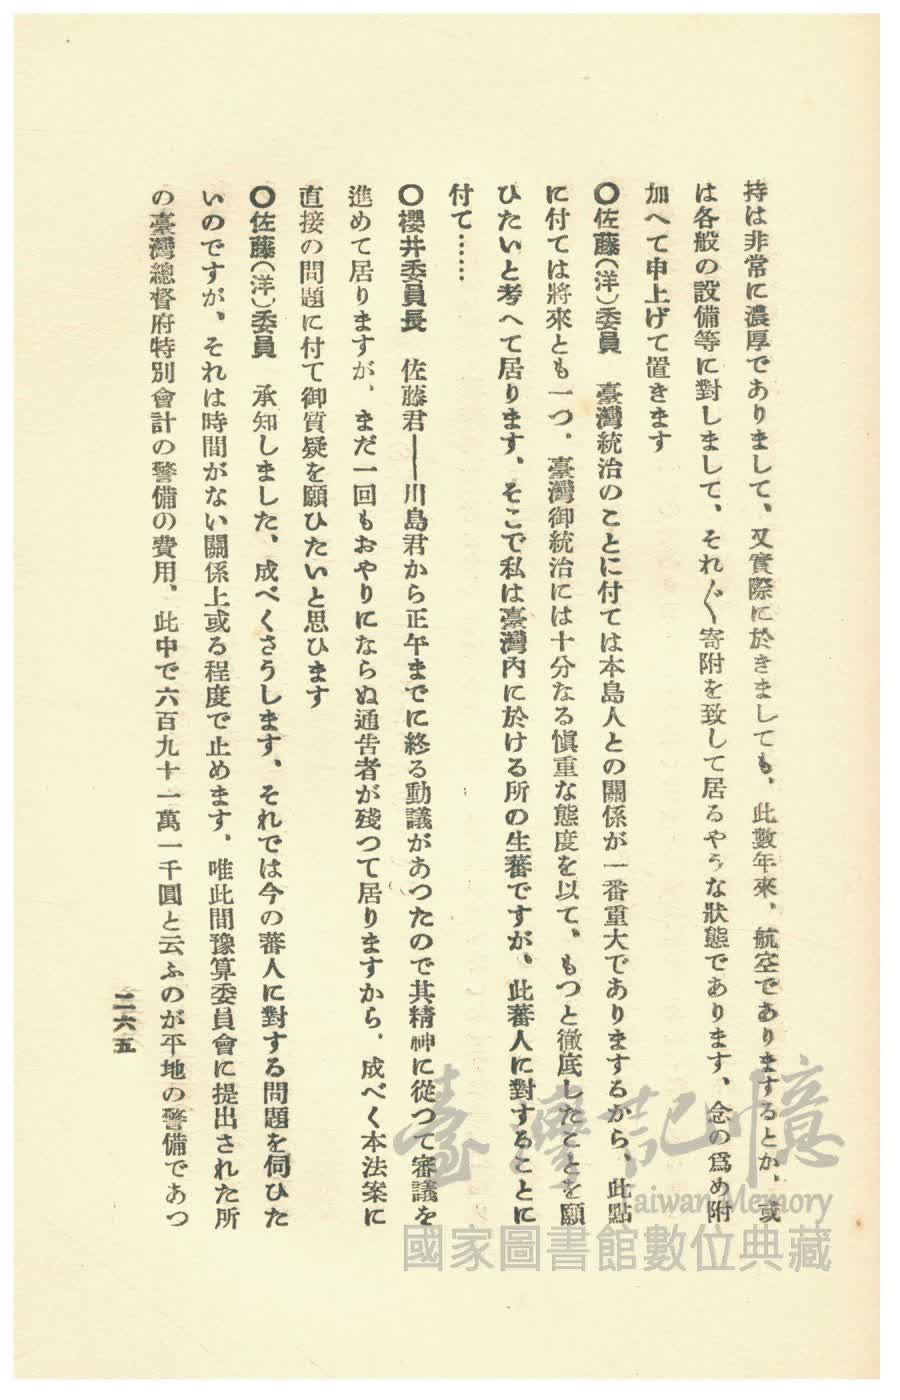 持は非常に濃厚でありまして、又實際に於きましても、此數年來、航空でありまするとか、或
は各般の設備等に對しまして、それ〴〵寄附を致して居るやうな狀態であります、念の爲め附
加へて申上げて置きます
〇佐藤(洋)委員　臺灣統治のことに付ては本島人との關係が一番重大でありまするから、此點
に付ては將來とも一つ、臺灣御統治には十分なる愼重な態度を以て、もつと徹底したことを願
ひたいと考へて居ります、そこで私は臺灣內に於ける所の生蕃ですが、此蕃人に對することに
付て……
〇櫻井委員長　佐藤君――川島君から正午までに終る動議があつたので其精神に從つて審議を
進めて居りますが、まだ一回もおやりにならぬ通告者が殘つて居りますから、成べく本法案に
直接の問題に付て御質疑を願ひたいと思ひます
〇佐藤(洋)委員　承知しました、成べくさうします、それでは今の蕃人に對する問題を伺ひた
いのですが、それは時間がない關係上或る程度で止めます、唯此間豫算委員會に提出された所
の臺灣總督府特別會計の警備の費用、此中で六百九十一萬一千圓と云ふのが平地の警備であつ
二六五
臺灣記憶
Taiwan Memory
國家圖書館數位典藏